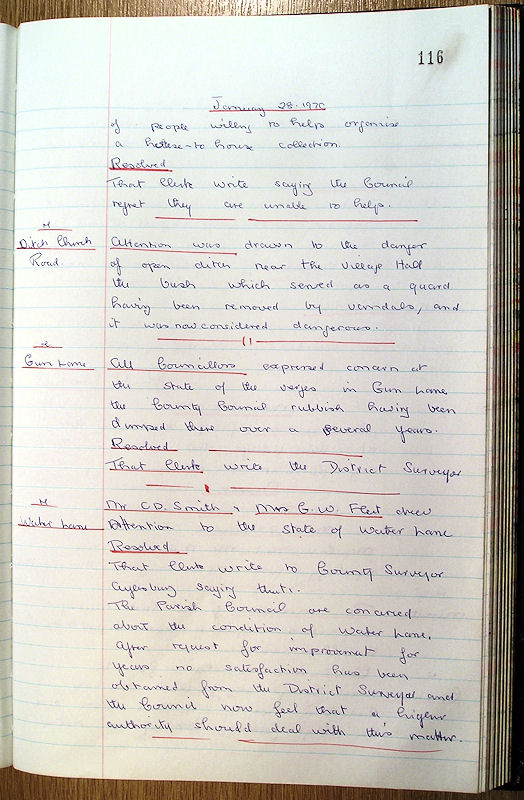 116
January 28. 1970
of people willing to help organise
a house-to house collection.
Resolved
That Clerk write saying the Council
regret they are unable to help.
Ditch Church Road
Attention was drawn to the danger
of open ditch near the Village Hall
the bush which served as a guard
having been removed by vandals, and
it was now considered dangerous.
Gun Lane
All Councillors expressed concern at
the state of the verges in Gun Lane
the County Council rubbish having been
dumped there over a several years.
Resolved
That Clerk write the District Surveyor
Water Lane
Mr C.D. Smith, Mrs G.W. Fleet drew
Attention to the state of Water Lane
Resolved
That Clerk write to County Surveyor
saying that:
The Parish Council are concerned
about the condition of Water Lane,
after request for improvement for
years no satisfaction has been
obtained from the District Surveyor and
the Council now feel that a higher
authority should deal with this matter.